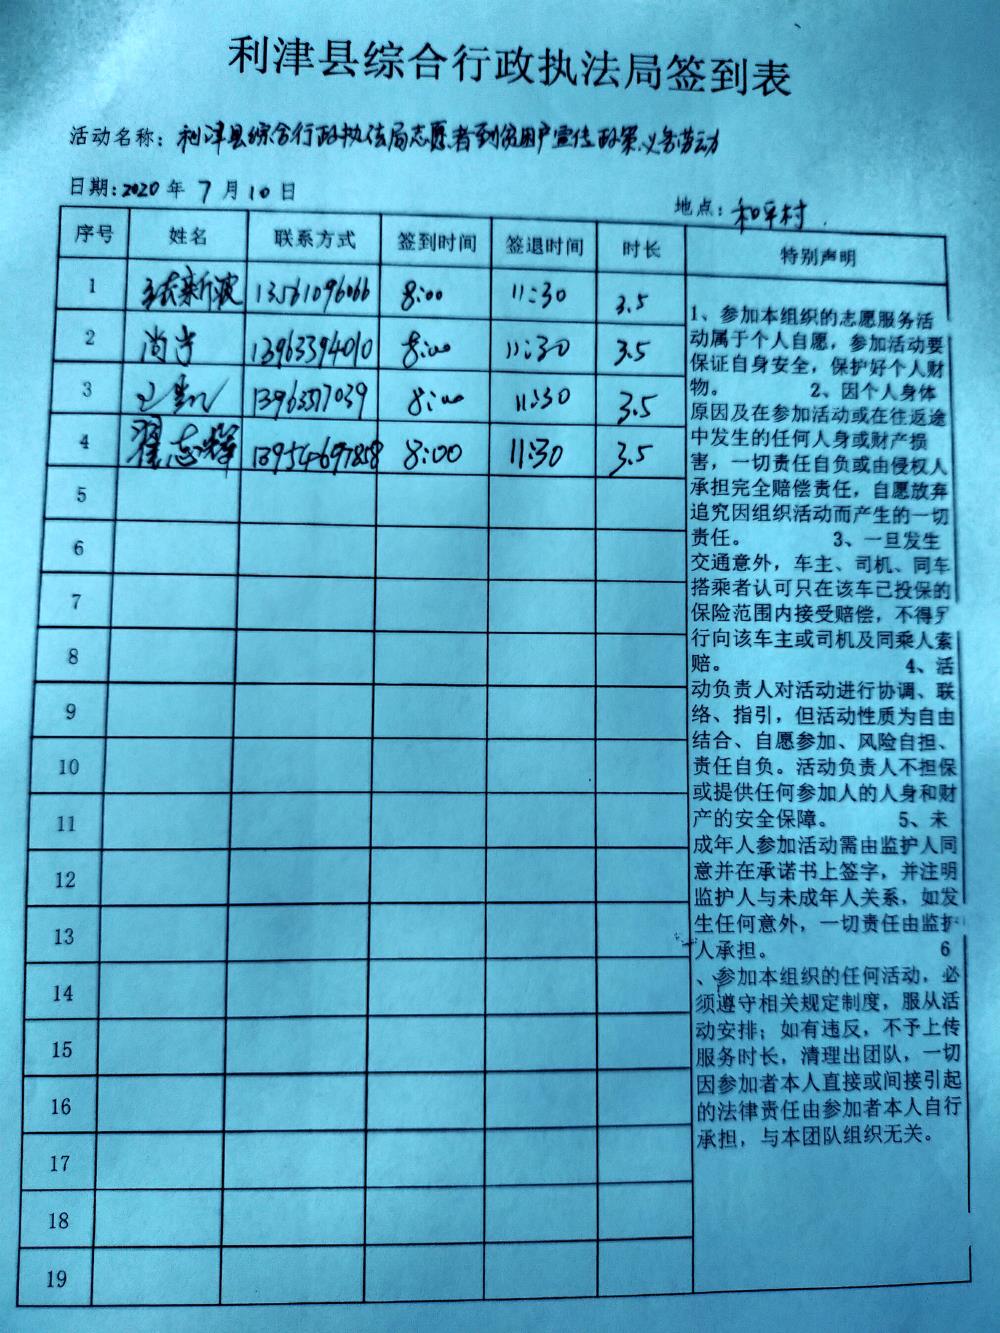 利津县综合行政执法局签到表
活动名称：利津县综合行政执法局志愿者到贫困户宣传政策、义务劳动
日期：2020 年 7 月 10 日
地点：和平村
序号 姓名 联系方式 签到时间 签退时间 时长 特别声明
1 13561096066 8:00 11:30 3.5
2 13963394010 8:00 11:30 3.5
3 8:00 11:30 3.5
4 翟志辉 13954697858 8:00 11:30 3.5
5
6
7
8
9
10
11
12
13
14
15
16
17
18
19
1、参加本组织的志愿服务活
动属于个人自愿，参加活动要
保证自身安全，保护好个人财
物。 2、因个人身体
原因及在参加活动或在往返途
中发生的任何人身或财产损
害，一切责任自负或由侵权人
承担完全赔偿责任，自愿放弃
追究因组织活动而产生的一切
责任。 3、一旦发生
交通意外，车主、司机、同车
搭乘者认可只在该车已投保的
保险范围内接受赔偿，不得另
行向该车主或司机及同乘人索
赔。 4、活
动负责人对活动进行协调、联
络、指引，但活动性质为自由
结合、自愿参加、风险自担、
责任自负。活动负责人不担保
或提供任何参加人的人身和财
产的安全保障。 5、未
成年人参加活动需由监护人同
意并在承诺书上签字，并注明
监护人与未成年人关系，如发
生任何意外，一切责任由监护
人承担。 6
、参加本组织的任何活动，必
须遵守相关规定制度，服从活
动安排；如有违反，不予上传
服务时长，清理出团队，一切
因参加者本人直接或间接引起
的法律责任由参加者本人自行
承担，与本团队组织无关。